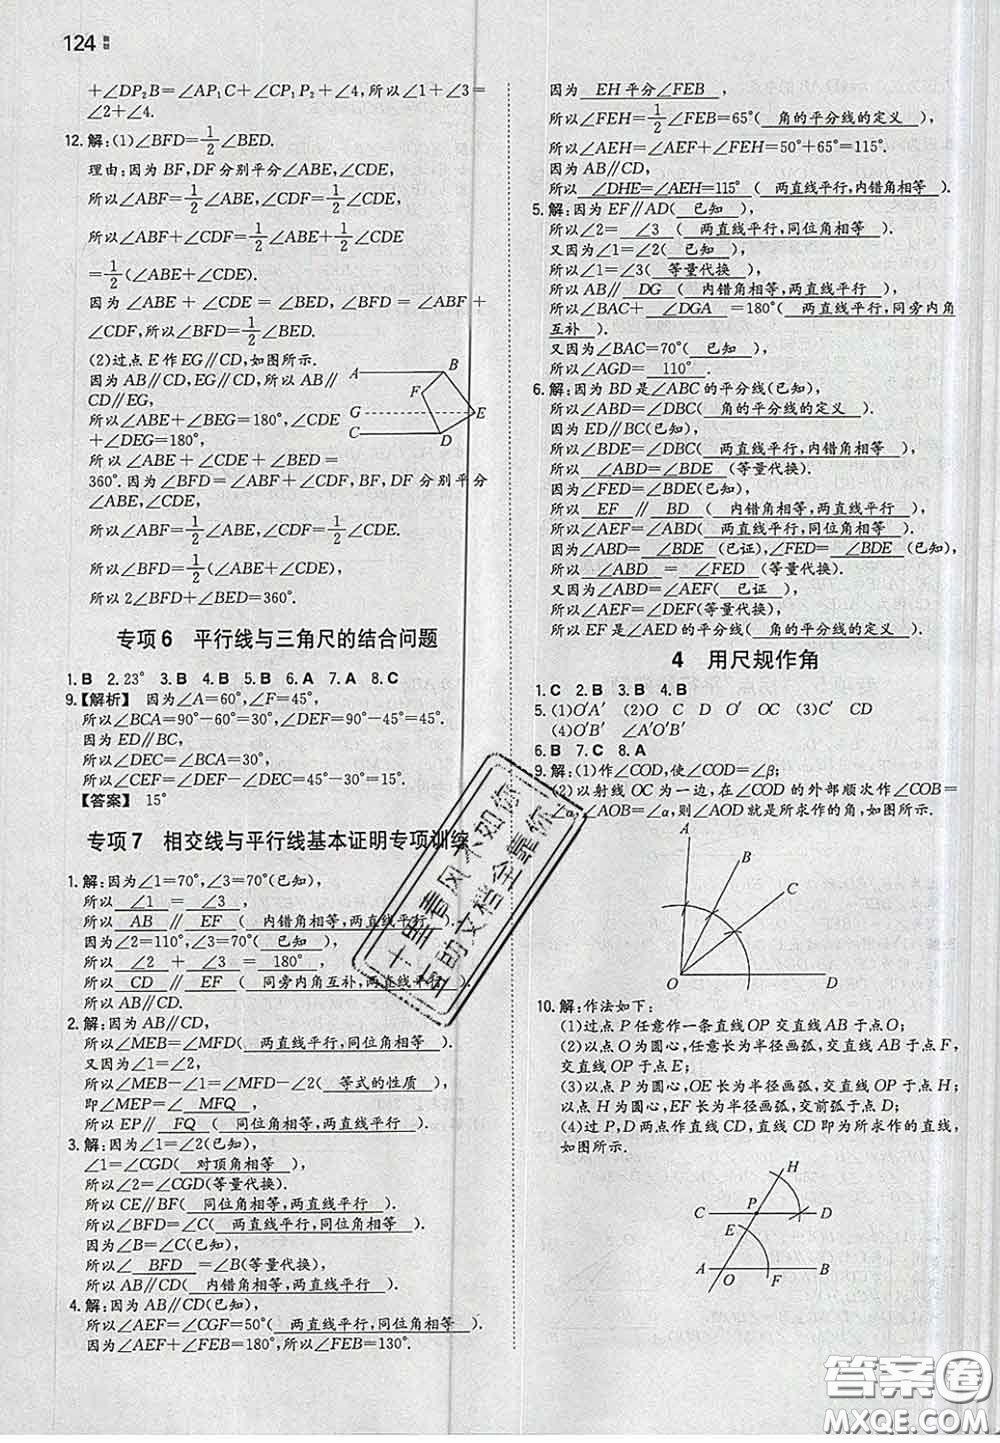 124
+∠DP₂B=∠AP₁C+∠CP₁P₂+∠4,所以∠1+∠3=
∠2+∠4.
12.解:(1)∠BFD=1/2∠BED.
理由:因为BF,DF分别平分∠ABE,∠CDE,
所以∠ABF=1/2∠ABE,∠CDF=1/2∠CDE,
所以∠ABF+∠CDF=1/2∠ABE+1/2∠CDE
=1/2(∠ABE+∠CDE).
因为∠ABE+∠CDE=∠BED,∠BFD=∠ABF+
∠CDF,所以∠BFD=1/2∠BED.
(2)过点E作EG∥CD,如图所示.
因为AB∥CD,EG∥CD,所以AB∥
CD∥EG,
所以∠ABE+∠BEG=180°,∠CDE
+∠DEG=180°,
所以∠ABE+∠CDE+∠BED=
360°.因为∠BFD=∠ABF+∠CDF,BF,DF分别平分
∠ABE,∠CDE,
所以∠ABF=1/2∠ABE,∠CDF=1/2∠CDE,
所以∠BFD=1/2(∠ABE+∠CDE),
所以2∠BFD+∠BED=360°.
A B F G E C D
专项6 平行线与三角尺的结合问题
1.B 2.23° 3.B 4.B 5.B 6.A 7.A 8.C
9.【解析】 因为∠A=60°,∠F=45°,
所以∠BCA=90°-60°=30°,∠DEF=90°-45°=45°.
因为ED∥BC,
所以∠DEC=∠BCA=30°,
所以∠CEF=∠DEF-∠DEC=45°-30°=15°.
【答案】 15°
专项7 相交线与平行线基本证明专项训练
1.解:因为∠1=70°,∠3=70°(已知),
所以 ∠1 = ∠3 ,
所以 AB ∥ EF ( 内错角相等,两直线平行 ).
因为∠2=110°,∠3=70°( 已知 ),
所以 ∠2 + ∠3 = 180° ,
所以 CD ∥ EF ( 同旁内角互补,两直线平行 ),
所以AB∥CD.
2.解:因为AB∥CD,
所以∠MEB=∠MFD( 两直线平行,同位角相等 ).
又因为∠1=∠2,
所以∠MEB-∠1=∠MFD-∠2( 等式的性质 ),
即∠MEP=∠ MFQ ,
所以EP∥ FQ ( 同位角相等,两直线平行 ).
3.解:因为∠1=∠2(已知),
∠1=∠CGD( 对顶角相等 ),
所以∠2=∠CGD(等量代换),
所以CE∥BF( 同位角相等,两直线平行 ),
所以∠BFD=∠C( 两直线平行,同位角相等 ).
因为∠B=∠C(已知),
所以∠ BFD =∠B(等量代换),
所以AB∥CD( 内错角相等,两直线平行 ).
4.解:因为AB∥CD(已知),
所以∠AEF=∠CGF=50°( 两直线平行,同位角相等 ).
因为∠AEF+∠FEB=180°,所以∠FEB=130°.
因为 EH平分∠FEB ,
所以∠FEH=1/2∠FEB=65°( 角的平分线的定义 ),
所以∠AEH=∠AEF+∠FEH=50°+65°=115°.
因为AB∥CD,
所以 ∠DHE=∠AEH=115° ( 两直线平行,内错角相等 ).
5.解:因为EF∥AD( 已知 ),
所以∠2= ∠3 ( 两直线平行,同位角相等 ).
又因为∠1=∠2( 已知 ),
所以∠1=∠3( 等量代换 ),
所以AB∥ DG ( 内错角相等,两直线平行 ),
所以∠BAC+ ∠DGA =180°( 两直线平行,同旁内角
互补 ).
又因为∠BAC=70°( 已知 ),
所以∠AGD= 110° .
6.解:因为BD是∠ABC的平分线(已知),
所以∠ABD=∠DBC( 角的平分线的定义 ).
因为ED∥BC(已知),
所以∠BDE=∠DBC( 两直线平行,内错角相等 ),
所以 ∠ABD=∠BDE (等量代换).
因为∠FED=∠BDE(已知),
所以 EF ∥ BD ( 内错角相等,两直线平行 ),
所以∠AEF=∠ABD( 两直线平行,同位角相等 ).
因为∠ABD= ∠BDE (已证),∠FED= ∠BDE (已知),
所以 ∠ABD = ∠FED (等量代换).
又因为 ∠ABD =∠AEF( 已证 ),
所以∠AEF=∠DEF(等量代换),
所以EF是∠AED的平分线(角的平分线的定义).
4 用尺规作角
1.C 2.B 3.B 4.B
5.(1)O′A′ (2)O C D O OC (3)C′ CD
(4)O′B′ ∠A′O′B′
6.B 7.C 8.A
9.解:(1)作∠COD,使∠COD=∠β;
(2)以射线OC为一边,在∠COD的外部顺次作∠COB=
∠α,∠AOB=∠α,则∠AOD就是所求作的角,如图所示.
A B C O D
10.解:作法如下:
(1)过点P任意作一条直线OP交直线AB于点O;
(2)以点O为圆心,任意长为半径画弧,交直线AB于点F,
交直线OP于点E;
(3)以点P为圆心,OE长为半径画弧,交直线OP于点H;
以点H为圆心,EF长为半径画弧,交前弧于点D;
(4)过P,D两点作直线CD,直线CD即为所求作的直线,
如图所示.
H C P D E A O F B
十里青风不如你
互助文档全靠你
答案圈
MXQE.COM